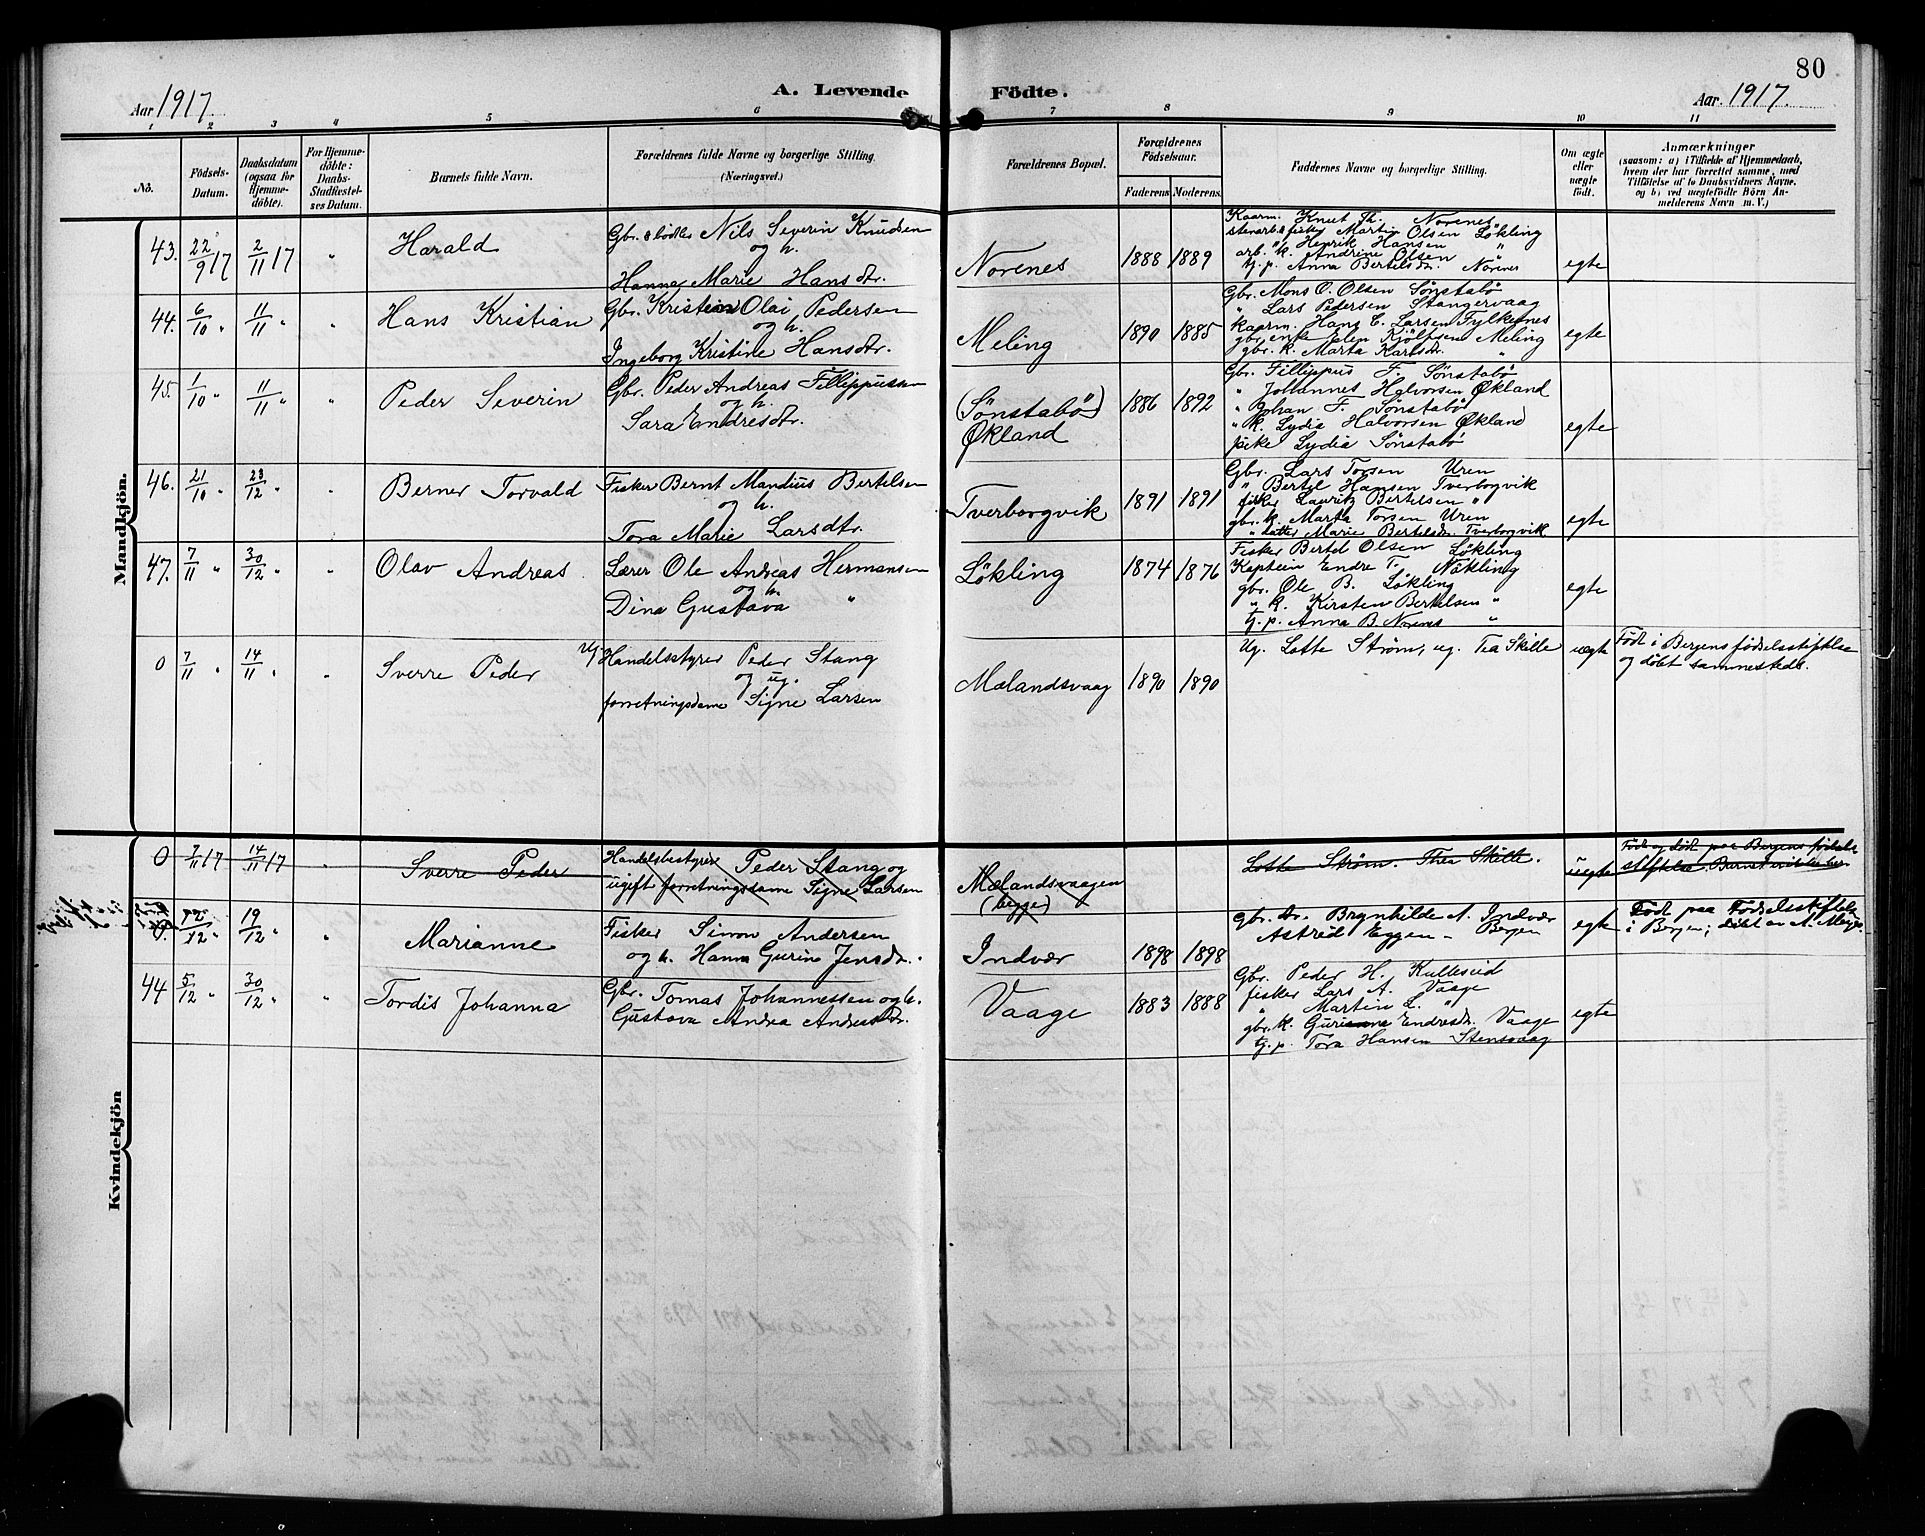 80
Aar 1917
A. Levende Födte.
Aar 1917.
1 2 3 4 5 6 7 8 9 10 11
No.
Födsels-
Datum.
Daabsdatum
(ogsaa for
Hjemme-
döbte).
For Hjemme-
döbte:
Daabs-
Stadfæstel-
ses Datum.
Barnets fulde Navn.
Forældrenes fulde Navne og borgerlige Stilling.
(Næringsvei.)
Forældrenes Bopæl.
Forældrenes
Födselsaar.
Faderens. Moderens.
Faddernes Navne og borgerlige Stilling.
Om ægte
eller
uægte
födt.
Anmærkninger
(saasom: a) i Tilfælde af Hjemmedaab,
hvem der har forrettet samme, med
Tilföielse af to Daabsvidners Navne,
og b) ved uægtefödte Börn An-
melderens Navn m. V.)
Mandkjön.
43. 22/9 17 2/11 17 " Harald
Gbr. & bödker Nils Severin Knudsen
og h.
Hanna Marie Hansdtr.
Norenes 1888 1889
Kaarm. Knut Th. Norenes
stenarb & fisker Martin Olsen Lökling
arb. " Henrik Hansen "
" k. Andrine Olsen "
tj.p. Anna Bertelsdr. Norenes
egte
44. 6/10 " 11/11 " " Hans Kristian
Gbr. Kristian Olai Pedersen
og h.
Ingeborg Kristine Hansdtr.
Meling 1890 1885
Gbr. Mons O. Olsen Sönstabö
" Lars Pedersen Stangervaag
Kaarm. Hans C. Larsen Fylkesnes
gbr. enke Elen Kjölfsen Meling
gbr. k. Marta Karlsdr. "
egte
45. 1/10 " 11/11 " " Peder Severin
Gbr. Peder Andreas Fillippussen
og h.
Sara Endresdtr.
(Sönstabö)
Økland
1886 1892
Gbr. Fillippus F. Sönstabö
" Johannes Halvorsen Økland
" Johan F. Sönstabö
" k. Lydia Halvorsen Økland
pike Lydia Sönstabö
egte
46. 21/10 " 23/12 " " Berner Torvald
Fisker Bernt Mandius Bertelsen
og h.
Tora Marie Larsdtr.
Tverborgvik 1891 1891
Gbr. Lars Torsen Uren
" Bertel Hansen Tverborgvik
fisker Lauritz Bertelsen "
gbr. k. Marta Torsen Uren
" datter Marie Bertelsdr. Tverborgvik
egte
47. 7/11 " 30/12 " " Olav Andreas
Lærer Ole Andreas Hermansen
og h.
Dina Gustava "
Lökling 1874 1876
Fisker Bertel Olsen Lökling
Kaptein Endre T. Nökling
gbr. Ole B. Lökling
" k. Kirsten Bertelsen "
tj.p. Anna B. Norenes "
egte
0 7/11 " 14/11 " " Sverre Peder
ug. Handelsstyrer Peder Stang
og ug.
forretningsdame Signe Larsen
Mælandsvaag 1890 1890
Ug. Lotte Strøm, ug. Tea Skille
uegte
Født i Bergens fødselsstiftelse
og døbt sammesteds.
Kvindekjön
0 7/11 17 14/11 17 " Sverre Peder
Handelsbestyrer Peder Stang og
ugift forretningsdame Signe Larsen
Mælandsvaagen
(begge)
Lotte Strøm. Thea Skille.
uegte
Född og döbt paa Bergens fødsels
stiftelse.
0. 19/12 " " Marianne
Fisker Simon Andersen
og h. Hanna Gurine Jensdr.
Indvær 1898 1898
Gbr. dr. Brynhilde A. Indvær
Astrid Eggen - Bergen
egte
Född paa Fødselsstiftelse
i Bergen; döbt av
44 5/12 " 30/12 " " Tordis Johanna
Gbr. Tomas Johannessen og h.
Gustava Andrea Andreasdr.
Vaage 1883 1888
Gbr. Peder H. Kulleseid
fisker Lars A. Vaage
" Martin L. "
gbr. k. Gurianna Endresdr. Vaage
tj.p. Tora Hansen Stensvaag
egte